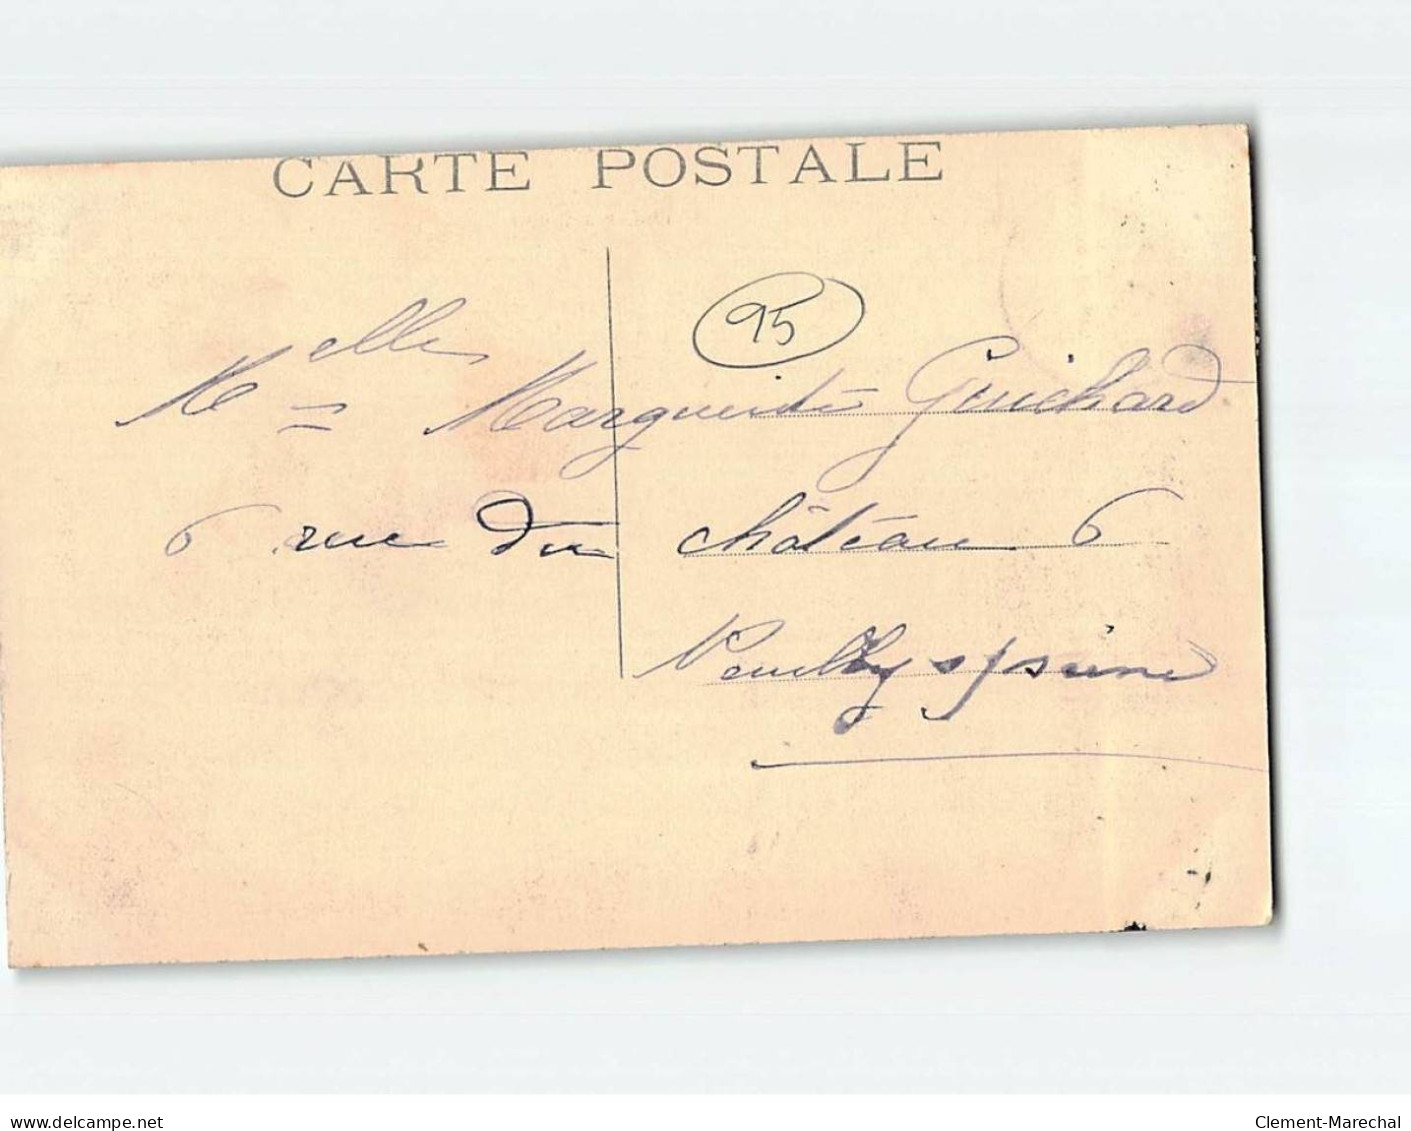 CARTE POSTALE
95
Melle Marguerite Guichard
6 rue du château 6
Neuilly s/seine
delcampe.net
Clement-Marechal